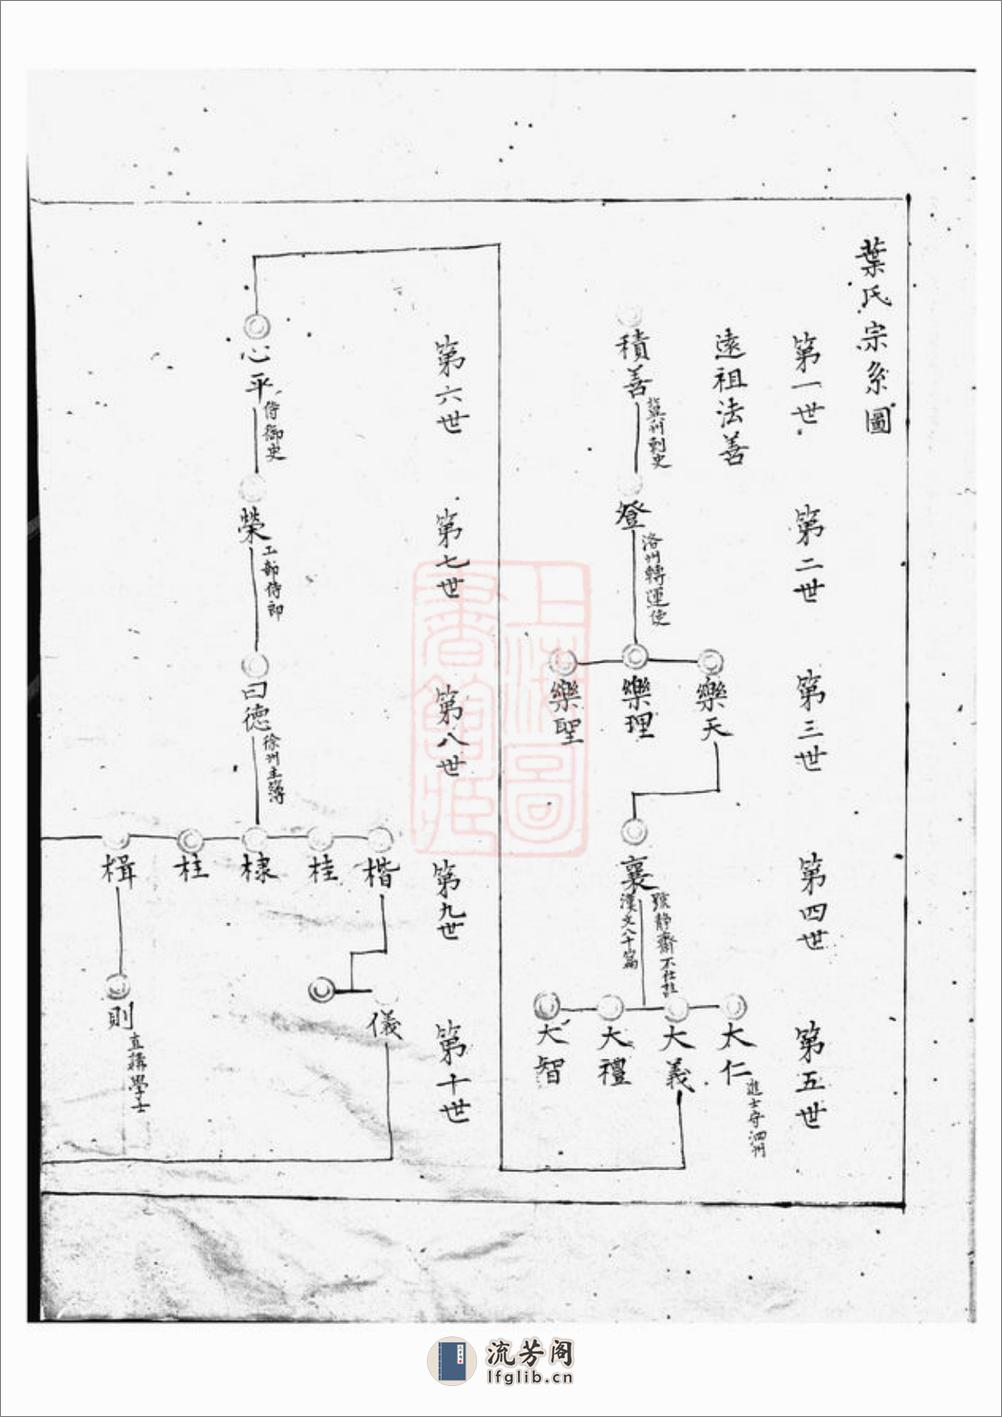 葉氏宗系圖
第一世
第二世
第三世
第四世
第五世
遠祖法善
積善
冀州刺史
登
洛州轉運使
樂天
樂理
樂聖
襄
號靜齋不仕
漢文八十篇
大仁
進士守泗州
大義
大禮
大智
第六世
第七世
第八世
第九世
第十世
心平
侍御史
榮
工部侍郎
曰德
徐州主簿
楷
桂
棣
柱
楫
儀
則
直講學士
上海圖
書館藏
流芳阁
lfglib.cn